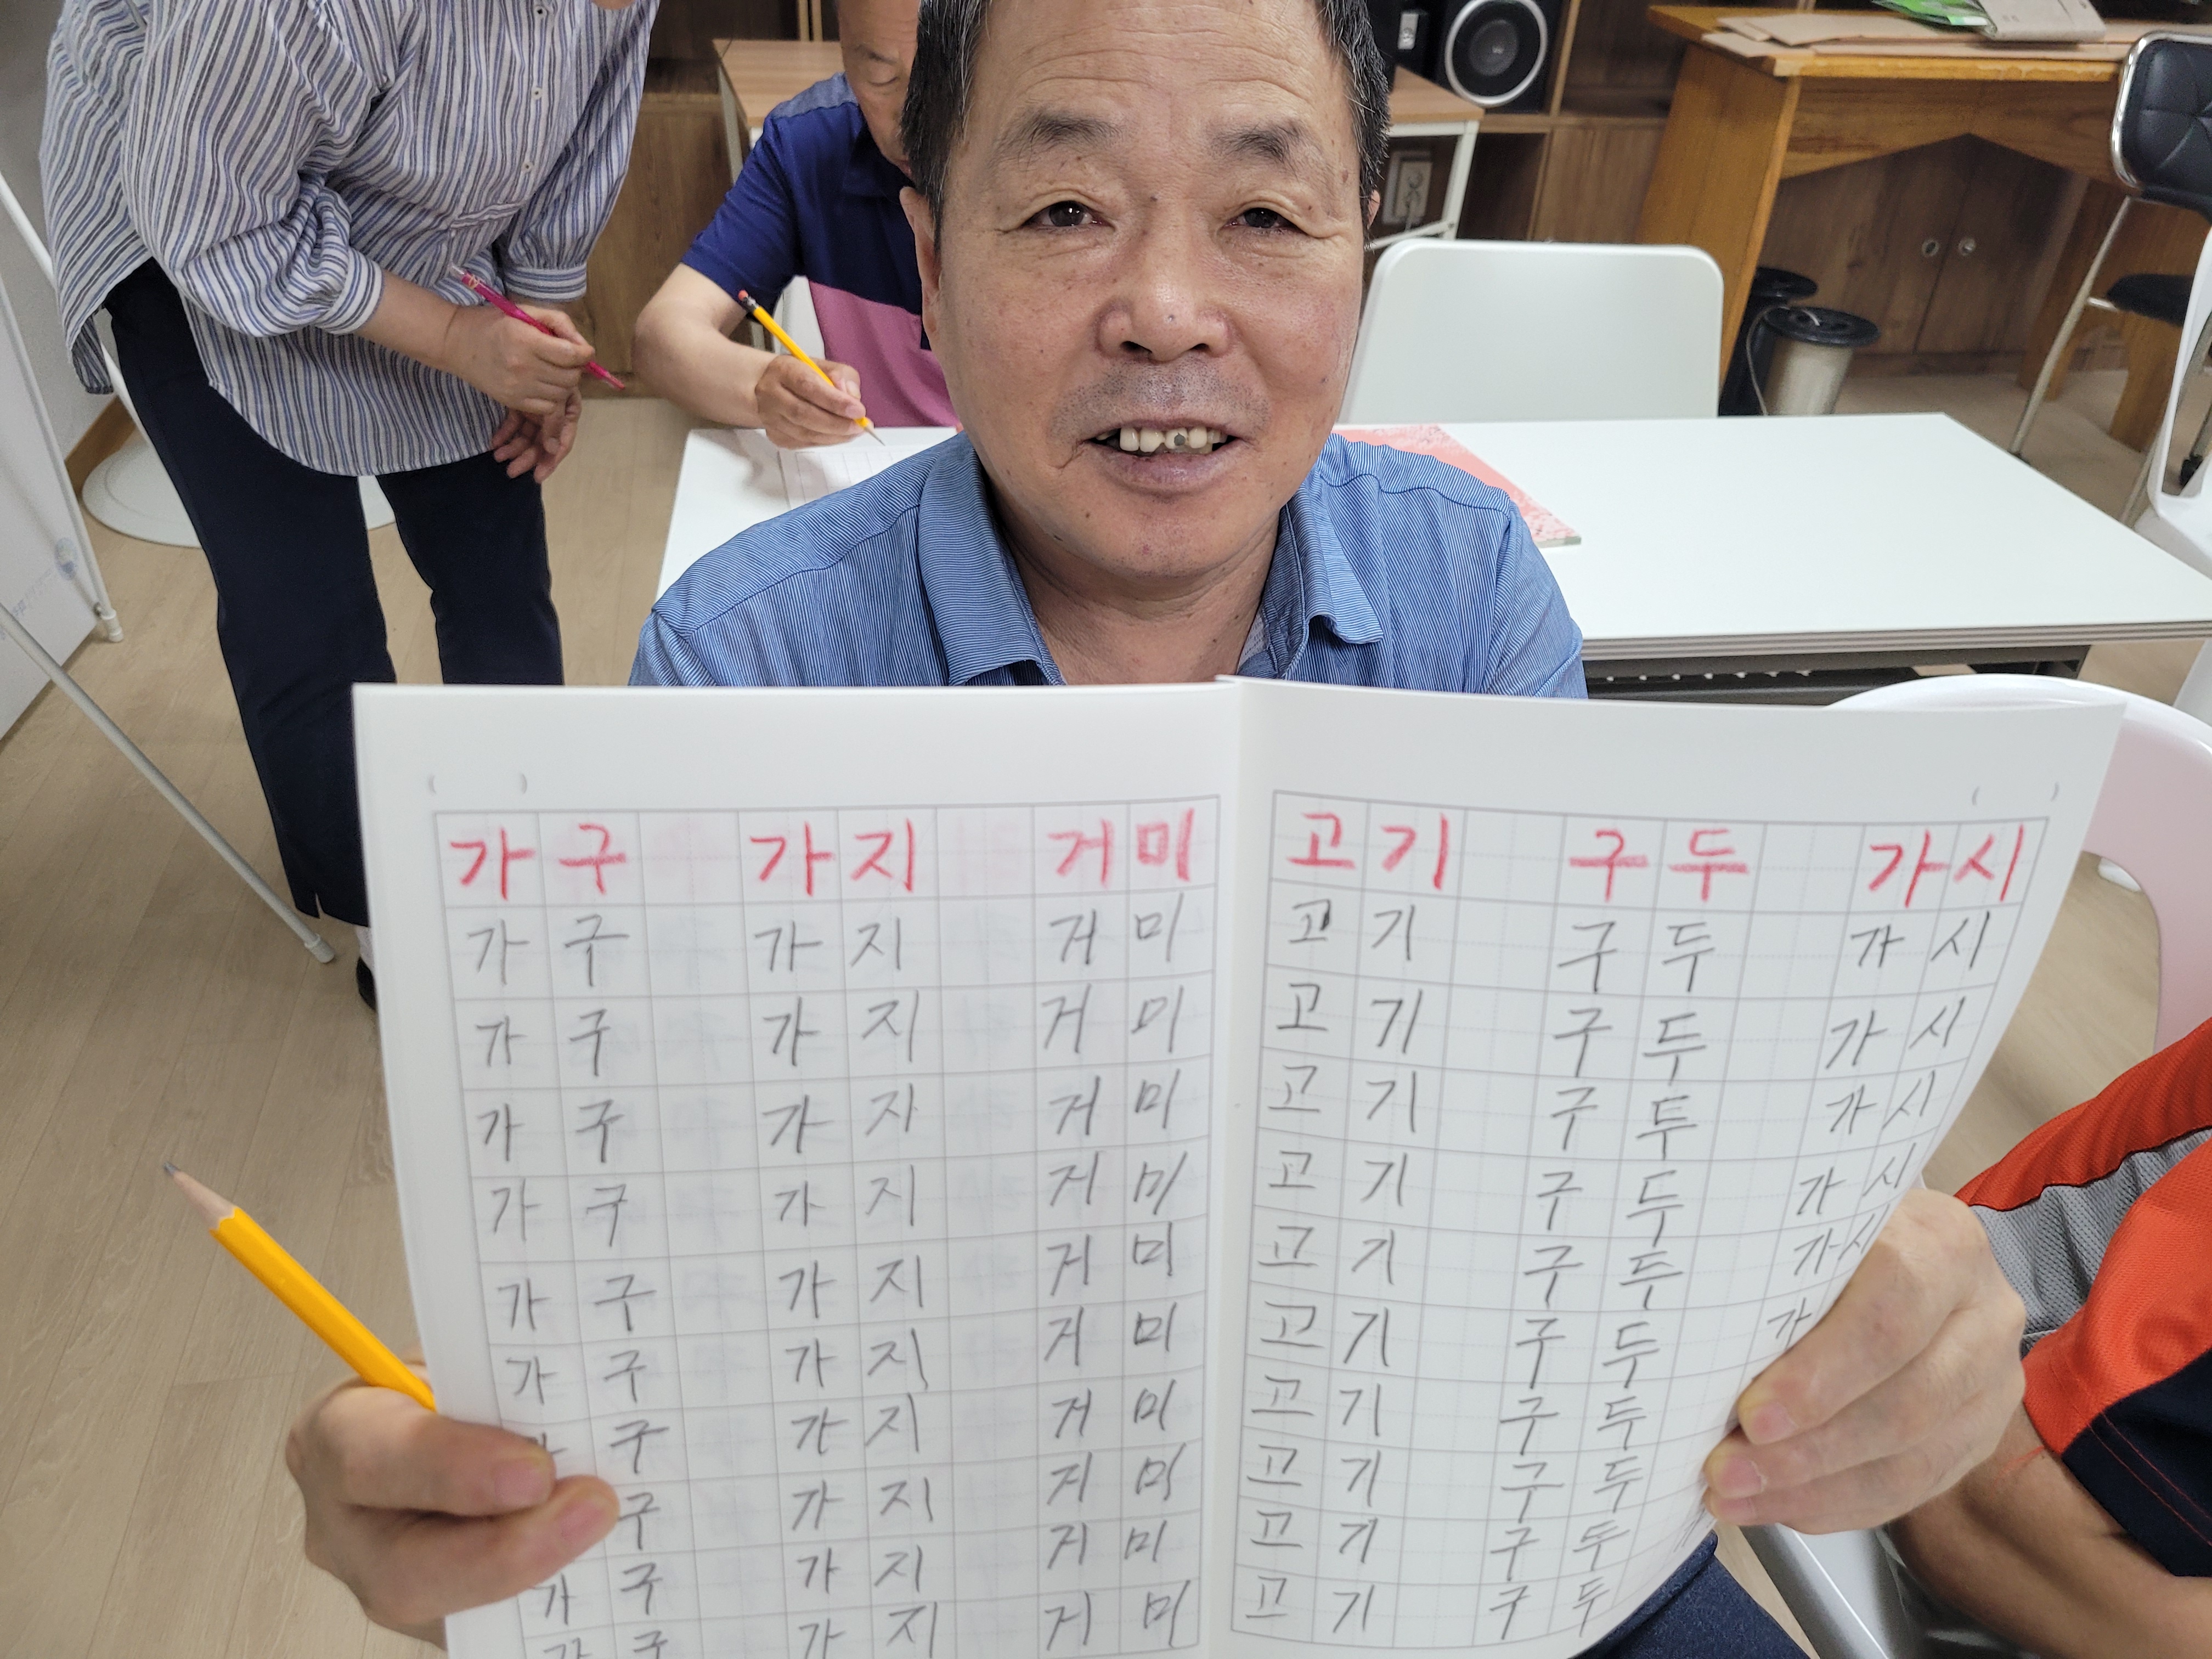 가구 가지 거미 고기 구두 가시
가구 가지 거미 고기 구두 가시
가구 가지 거미 고기 구두 가시
가구 가자 거미 고기 구두 가시
가구 가지 거미 고기 구두 가시
가구 가지 거미 고기 구두 가시
가구 가지 거미 고기 구두 가
구 가지 거미 고기 구두
구 가지 거미 고기 구두
가구 가지 거미 고기 구두
가구 가지 거미 고기 구두